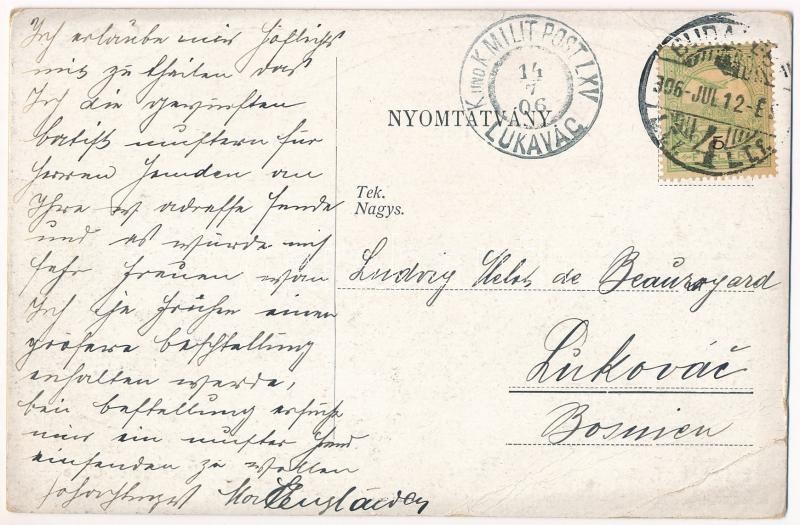 Ich erlaube mir höflichst
mit zu theilen das
Ich die gewünschten
batist mustern für
herren hemden an
Ihre w adresse sende
und es würde mich
sehr freuen wen
Ich je früher einen
grösere beschtellung
erhalten werde,
bei bestellung ersuche
mir ein muster hemd
einsenden zu wollen
hochachtungst
K UND K MILIT. POST LXV
14
7
06
LUKAVÁC
NYOMTATVÁNY
BUDA
906-JUL 12-E
5
Tek.
Nagys.
Ludvig de Beauregard
Lukováč
Bosnien